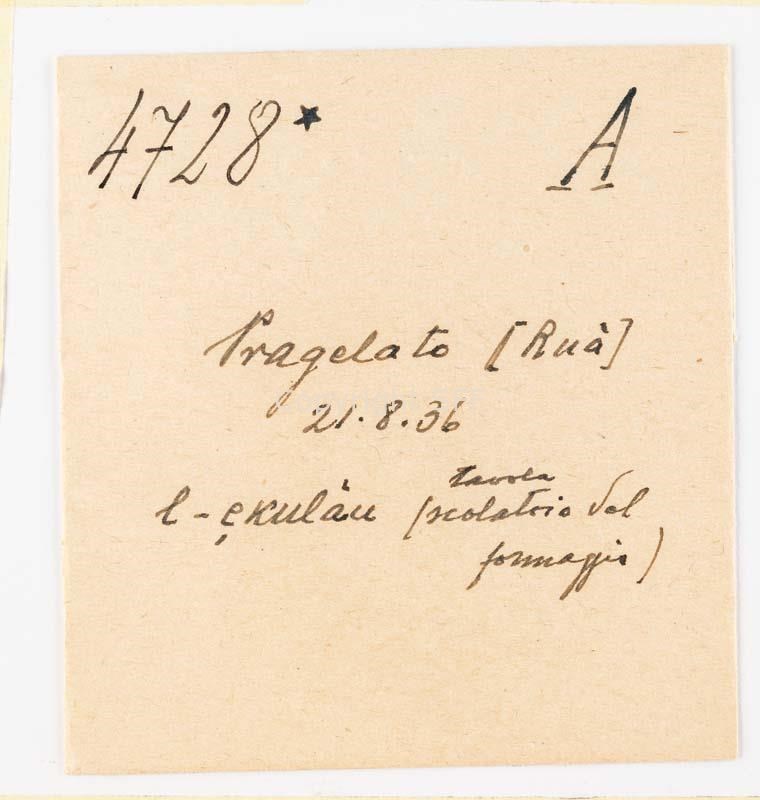 4728* A
Pragelato [Ruà]
21.8.36
l-ẹkulàu (scolatoio del
tavola
formaggio)